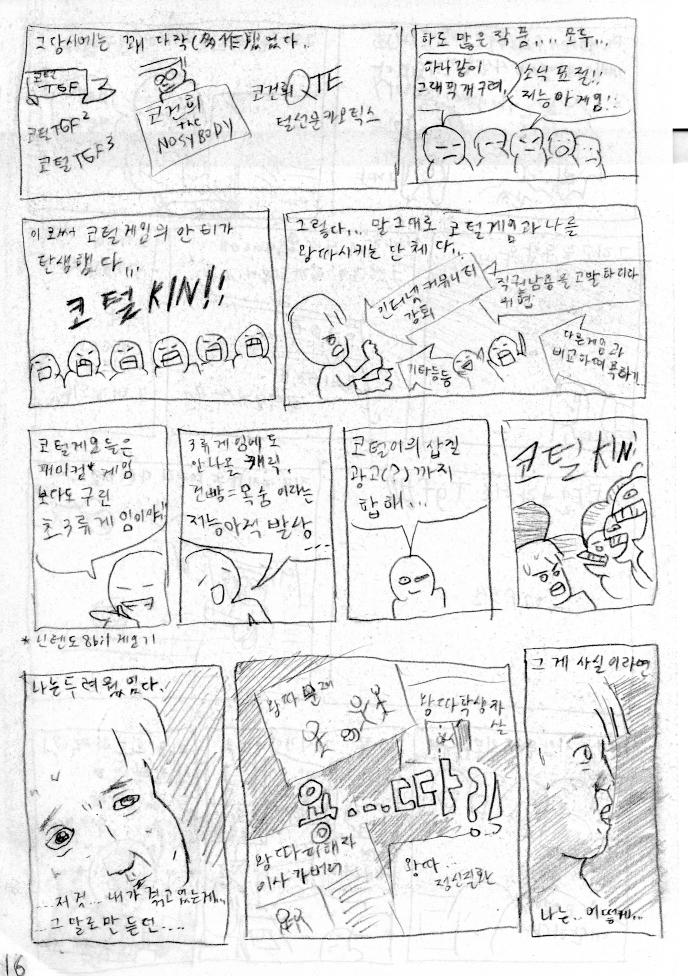 그당시에는 꽤 다작(多作)했었다..
코털
TGF 3
코털TGF²
코털TGF³
코건희
the
NOSYBODY
코건희 QTE
털선문카오틱스
하도 많은 작품.... 모두...
하나같이
그래픽 개구려.
소닉 표절!!
저능아게임!!
이로써 코털게임의 안티가
탄생했다...
코털 KIN!!
그렇다... 말 그대로 코털게임과 나를
왕따시키는 단체다...
인터넷 커뮤니티
강퇴
직권남용을 고발하리다
위협
기타등등
다른게임과
비교하며 욕하기
코털게임들은
패미컴* 게임
보다도 구린
초3류게임이야!!
3류게임에도
안나올 캐릭.
건빵=목숨이라는
저능아적 발상
...
코털이의 삽질
광고(?)까지
합해...
코털 KIN!
*닌텐도 8bit 게임기
나는 두려웠었다.
...저것... 내가 겪고 있는게..
그 말로만 듣던....
왕따 문제
왕따학생자
살
왕...따?!
왕따피해자
이사 가버려
왕따...
정신질환
그게 사실이라면
나는.. 어떻게...
16